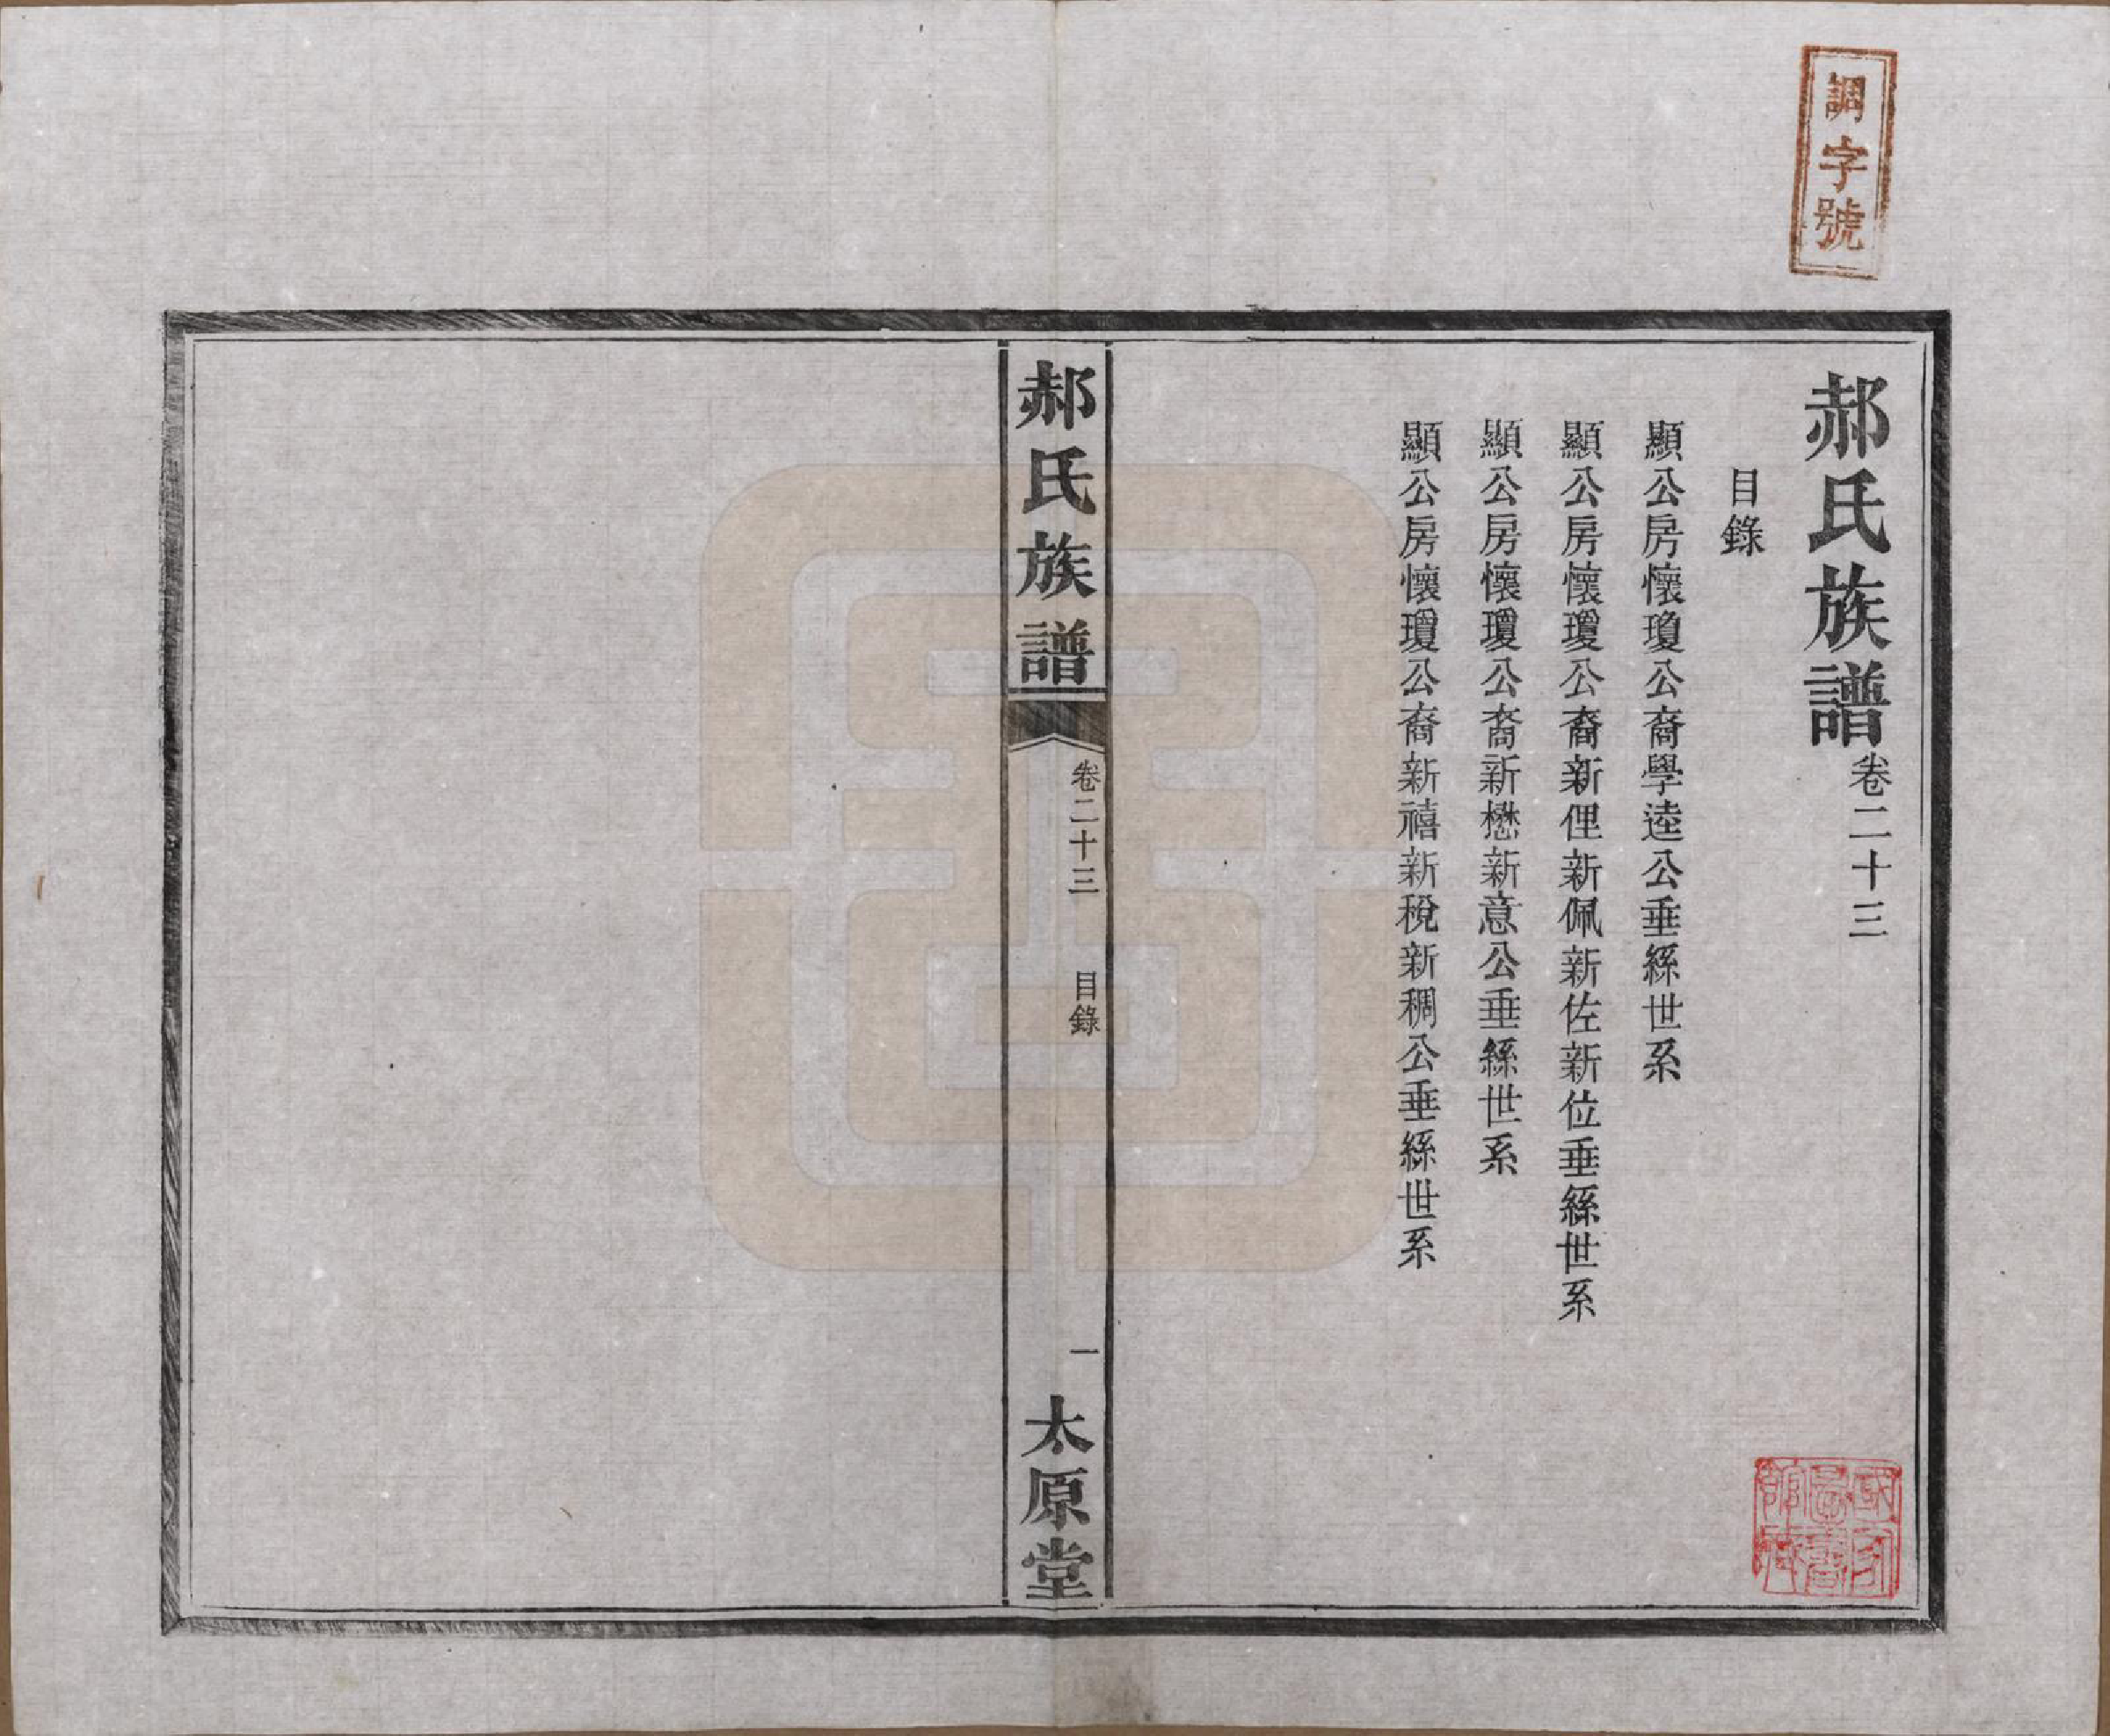 調字號
郝氏族譜卷二十三
目錄
顯公房懷瓊公裔學逵公垂絲世系
顯公房懷瓊公裔新俚新佩新佐新位垂絲世系
顯公房懷瓊公裔新懋新意公垂絲世系
顯公房懷瓊公裔新禧新稅新稠公垂絲世系
郝氏族譜
卷二十三
目錄
一
太原堂